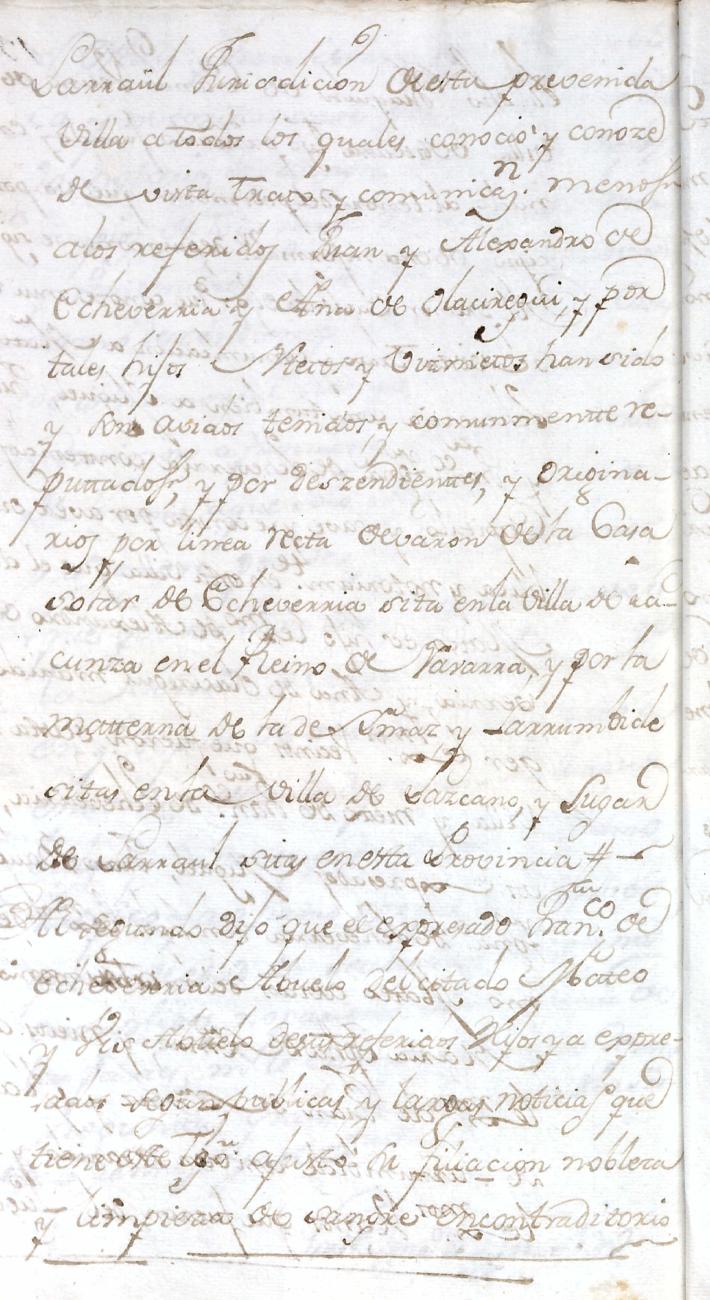 Larraul Jurisdicion de esta prevenida
Villa a todos los quales conocio y conoze
de vista trato y comunicazn. menos
a los referidos Juan y Alexandro de
Echeverria y Ana de Olaciregui, y por
tales hijos Nietos y Viznietos han sido
y son avidos tenidos y comunmentte re-
puttados, y por deszendienttes, y origina-
rios por linea recta de varon de la Casa
solar de Echeverria sita en la Villa de La-
cunza en el Reino de Navarra, y por la
matterna de la de y Larrumbide
sitas en la Villa de Lazcano, y Lugar
de Larraul sitas en esta Provincia #
Al segundo dijo que el expresado Franco. de
Echeverria Abuelo del citado Matteo
y Vis Abuelo de sus referidos Hijos ya expre-
sados segun publicas y largas noticias que
tiene este tgo. ajusto su filiacion nobleza
y limpieza de sangre en contraditorio